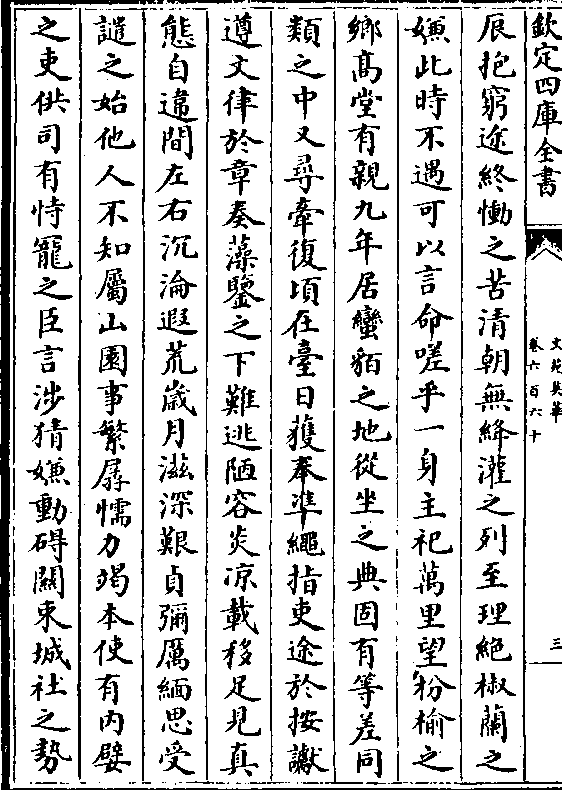 欽定四庫全書
文苑英華
卷六百六十
三
辰抱窮途終慟之苦清朝無絳灌之列至理絶椒蘭之
嫌此時不遇可以言命嗟乎一身主祀萬里望枌榆之
鄉髙堂有親九年居蠻貊之地從坐之典固有等差同
類之中又尋牽復頃在臺日獲奉凖繩指吏途於按讞
遵文律於章奏藻鑒之下難逃陋容炎凉載移足見真
態自違間左右沉淪遐荒嵗月滋深艱貞彌厲緬思受
譴之始他人不知屬山園事繁孱懦力竭本使有内嬖
之吏供司有恃寵之臣言涉猜嫌動碍關束城社之勢